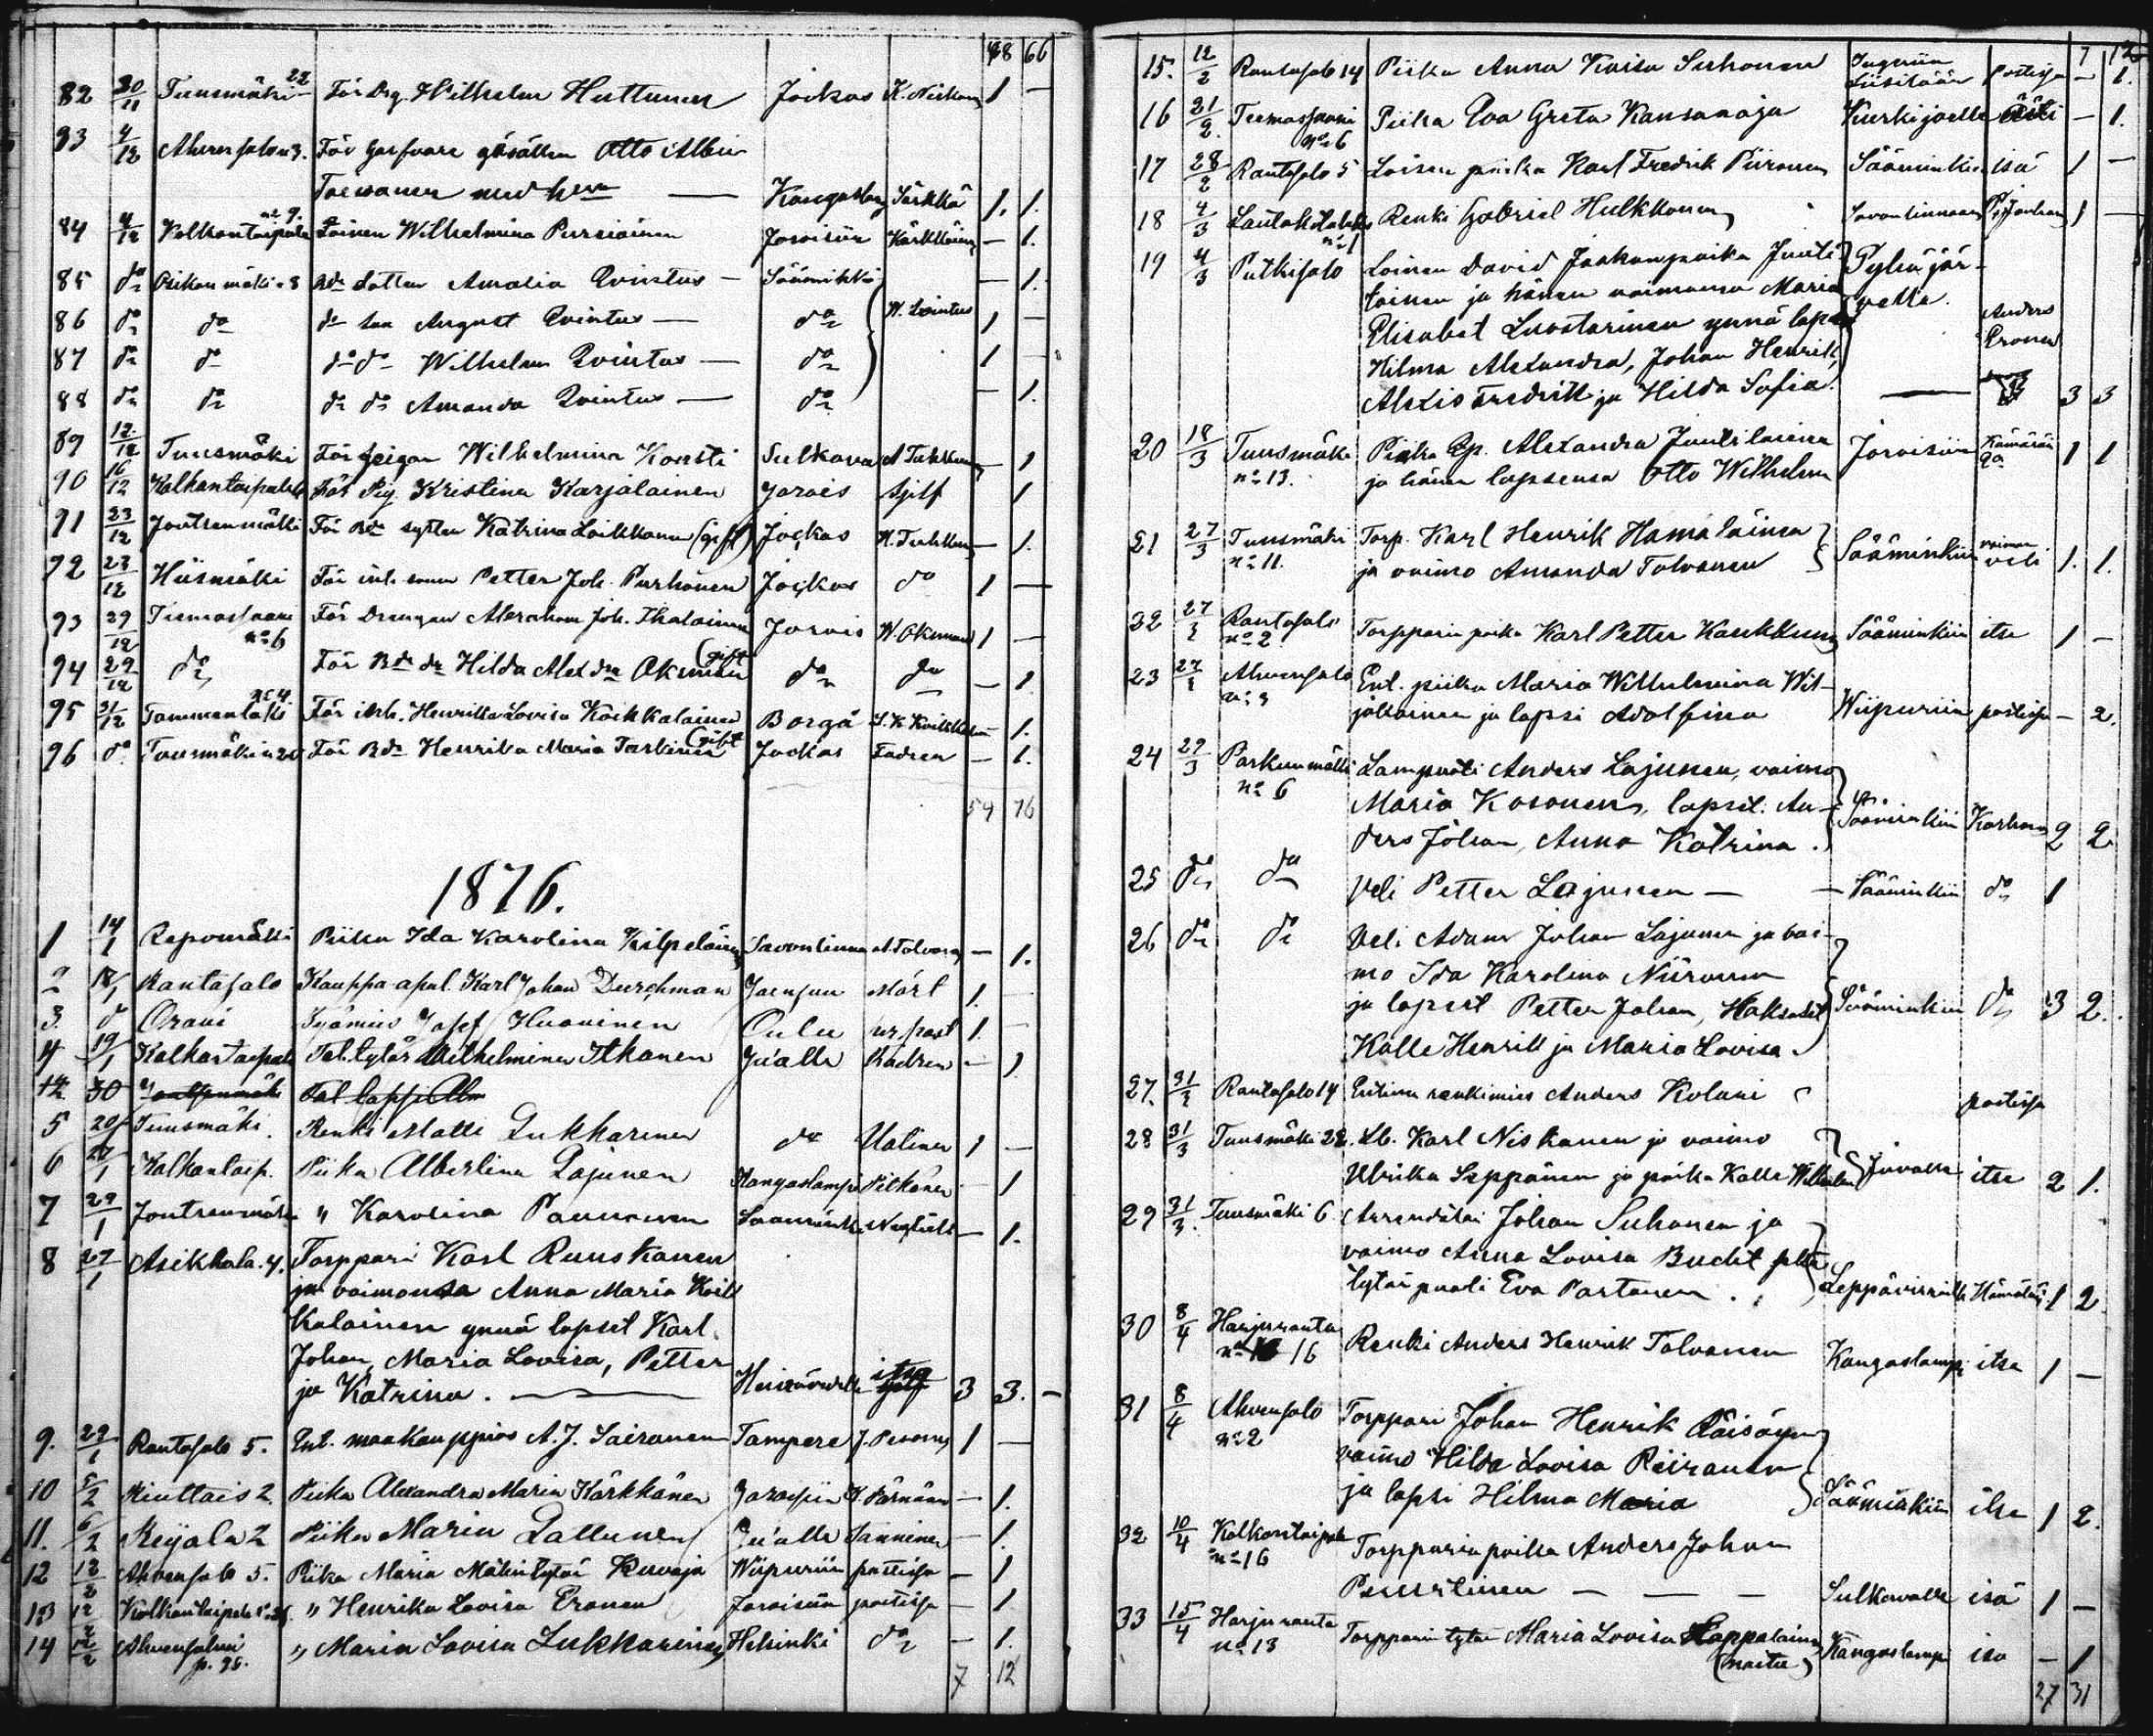 48 66
82 30/11 Tuusmäki 22 För Drg. Wilhelm Huttunen Jockas K. Niskanen 1 —
83 4/12 Ahvensalo n 3. För gårfvare gesällen Otto Albin
Toewanen med h:u — Kangaslampi Särkkä 1. 1.
84 4/12 Kolkontaipale n:o 9. Loinen Wilhelmina Pursiainen Joroisiin Kärkkäinen — 1.
85 do Pitkänmäki n 8 Bde dotter Amalia Qvintus — Sääminki — 1.
86 do do do son August Qvintus — do W. Qvintus 1 —
87 do do do do Wilhelm Qvintus — do 1 —
88 do do do dr Amanda Qvintus — do — 1.
89 12/12 Tuusmäki För pigan Wilhelmina Konsti Sulkava A Tukkunen — 1
90 16/12 Kolkontaipale För Pig. Kristina Karjalainen Jorois Sjelf 1
91 23/12 Joutsenmäki För Bde dotter Katrina Loikkanen (gift) Jockas H. Tukkunen — 1.
92 23/12 Hiismäki För inh. sonen Petter Joh. Purhonen Jockas do 1 —
93 29/12 Tiemassaari n:o 6 För Drengen Abraham Joh. Ikalainen Jorois W. Okman 1 —
94 29/12 do För Bde dr Hilda Alexdra Okman (gift do do — 1
95 31/12 Tammenlaksi n:o 4 För inh. Henrika Lovisa Koikkalainen Borgå — 1.
96 do Tuusmäki n 20 För Bde Henrika Maria Tarkinen (gift Jockas Fadren — 1.
59 76
1876.
1 14/1 Repomäki Piika Ida Karolina Kilpeläinen Savonlinna A. Tolvanen — 1.
2 18/1 Rantasalo Kauppa apul. Karl Johan Durchman Joensuu Mårt 1. —
3. d Oravi Työmies Josef Huovinen Oulu ur. past 1. —
4 19/1 Kolkontaipale Tal. tytär Wilhelmina Itkonen Ju'alle Badren — 1
30 Joutsenmäki Tal lapsi Alm
5 20/1 Tuusmäki. Renki Matti Lukkarinen do Utalinen 1 —
6 27/1 Kolkontaip. Piika Albertina Lajunen Kangaslampi Pitkänen — 1
7 29/1 Joutsenmäki " Karolina Paunonen — 1.
8 27/1 Asikkala. 4. Torppari Karl Ruuskanen
ja vaimonsa Anna Maria Koik
kalainen ynnä lapset Karl
Johan, Maria Lovisa, Petter
ja Katrina. — Heinävedelle itse 3 3. —
9. 29/1 Rantasalo 5. Ent. maakauppias A. J. Sairanen Tampere J. Pesonen 1 —
10 5/2 Kiuttais 2. Piika Alexandra Maria Kärkkänen Joroisiin K. Pärnänen — 1.
11. 6/2 Reijola 2 Piika Maria Lattunen Ju'alle Sanninen — 1.
12 12/2 Ahvensalo 5. Piika Maria Matintytär Kuvaja Wiipuriin poetissa — 1
13 12/2 Kolkontaipale " Henrika Lovisa Eronen Joroisiin poetissa — 1
14 12/2 Ahvensalmi p. 98. " Maria Lovisa Lukkarinen Helsinki do — 1.
7 12
7 12
15. 12/2 Rantasalo 14 Piika Anna Kaisa Suhonen Ingeriin Liisilään poetissa — 1.
16 21/2. Tiemassaari n:o 6 Piika Eva Greta Kansanoja Kurkijoelle Äiti — 1.
17 28/2 Rantasalo 5 Loisen poika Karl Fredrik Piironen Sääminkiin isä 1 —
18 4/3 n:o 1 Renki Gabriel Hulkkonen Savonlinnaan 1 —
19 4/3 Putkisalo Loinen David Jaakonpoika Junti
lainen ja hänen vaimonsa Maria Pyhäjär-
Elisabet Luostarinen ynnä lapset velle. Anders
Hilma Alexandra, Johan Henrik, Eronen
Alexis Fredrik ja Hilda Sofia. — 3 3
20 18/3 Tuusmäki n:o 13. Piika Ep. Alexandra Juntilainen
ja hänen lapsensa Otto Wilhelm Joroisiin 1 1
21 27/3 Tuusmäki n:o 11. Torp. Karl Henrik Hämäläinen
ja vaimo Amanda Tolvanen Sääminkiin vaimon veli 1. 1.
22 27/3 Rantasalo n:o 2 Torpparin poika Karl Petter Kaukkunen Sääminkiin itse 1 —
23 27/3 Ahvensalo n:o 3 Ent. piika Maria Wilhelmina Wil-
jakainen ja lapsi Adolfina Wiipuriin poetissa — 2.
24 29/3 Parkunmäki n:o 6 Lampuoti Anders Lajunen, vaimo
Maria Kosonen, lapset: An-
ders Johan, Anna Katrina. Sääminkiin Karhunen 2 2
25 do do Veli Petter Lajunen — — Sääminkiin do 1
26 do do Veli Adam Johan Lajunen ja vai-
mo Ida Karolina Niironen
ja lapset Petter Johan, Kaksoset Sääminkiin do 3 2.
Kalle Henrik ja Maria Lovisa.
27. 31/3 Rantasalo 14 Entinen renkimies Anders Kolari poetissa
28 31/3 Tuusmäki 22. Lb. Karl Niskanen ja vaimo
Ulrika Leppänen ja poika Kalle Wilhelm Juvalle itse 2 1.
29 31/3. Tuusmäki 6 Arrenditai Johan Suhonen ja
vaimo Anna Lovisa Bucht sekä
tytär puoli Eva Partanen. Leppävirralle Hämäläinen 1 2
30 8/4 Harjuranta n:o 16 Renki Anders Henrik Tolvanen Kangaslampi itse 1 —
31 8/4 Ahvensalo n:o 2 Torppari Johan Henrik Räisänen
vaimo Hilda Lovisa Piironen
ja lapsi Hilma Maria Sääminkiin itse 1 2.
32 10/4 Kolkontaipale n:o 16 Torpparin poika Anders Johan
Pesustinen — — — Sulkavalle isä 1 —
33 15/4 Harjuranta n:o 13 Torpparin tytär Maria Lovisa Kappalainen (naitu) Kangaslampi isä — 1
27 31